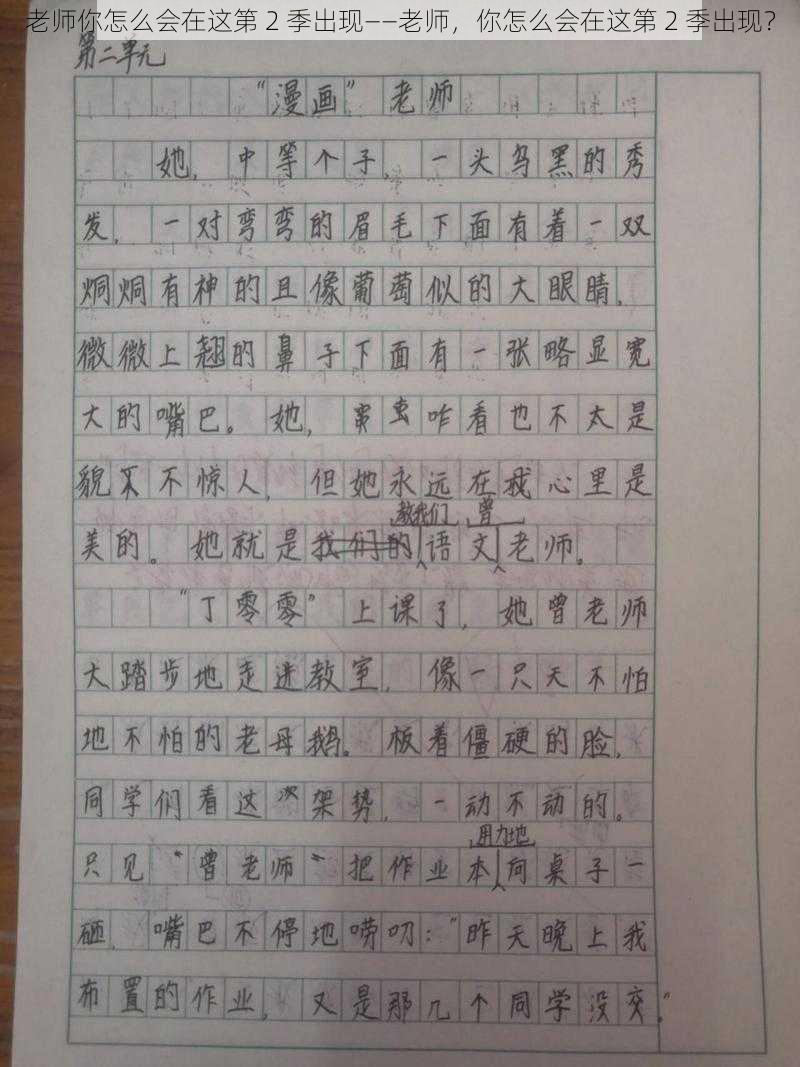 老师你怎么会在这第2季出现——老师，你怎么会在这第2季出现？
第二单元
“漫画”老师
她，中等个子，一头乌黑的秀
发，一对弯弯的眉毛下面有着一双
炯炯有神的且像葡萄似的大眼睛，
微微上翘的鼻子下面有一张略显宽
大的嘴巴。她，咋看也不太是
貌不惊人，但她永远在我心里是
教我们 曾
美的。她就是我们的语文老师。
“丁零零”上课了，她曾老师
大踏步地走进教室，像一只天不怕
地不怕的老母鹅。板着僵硬的脸，
同学们看这次架势，一动不动的。
用力地
只见“曾老师”把作业本向桌子一
砸，嘴巴不停地唠叨：“昨天晚上我
布置的作业，又是那几个同学没交。”